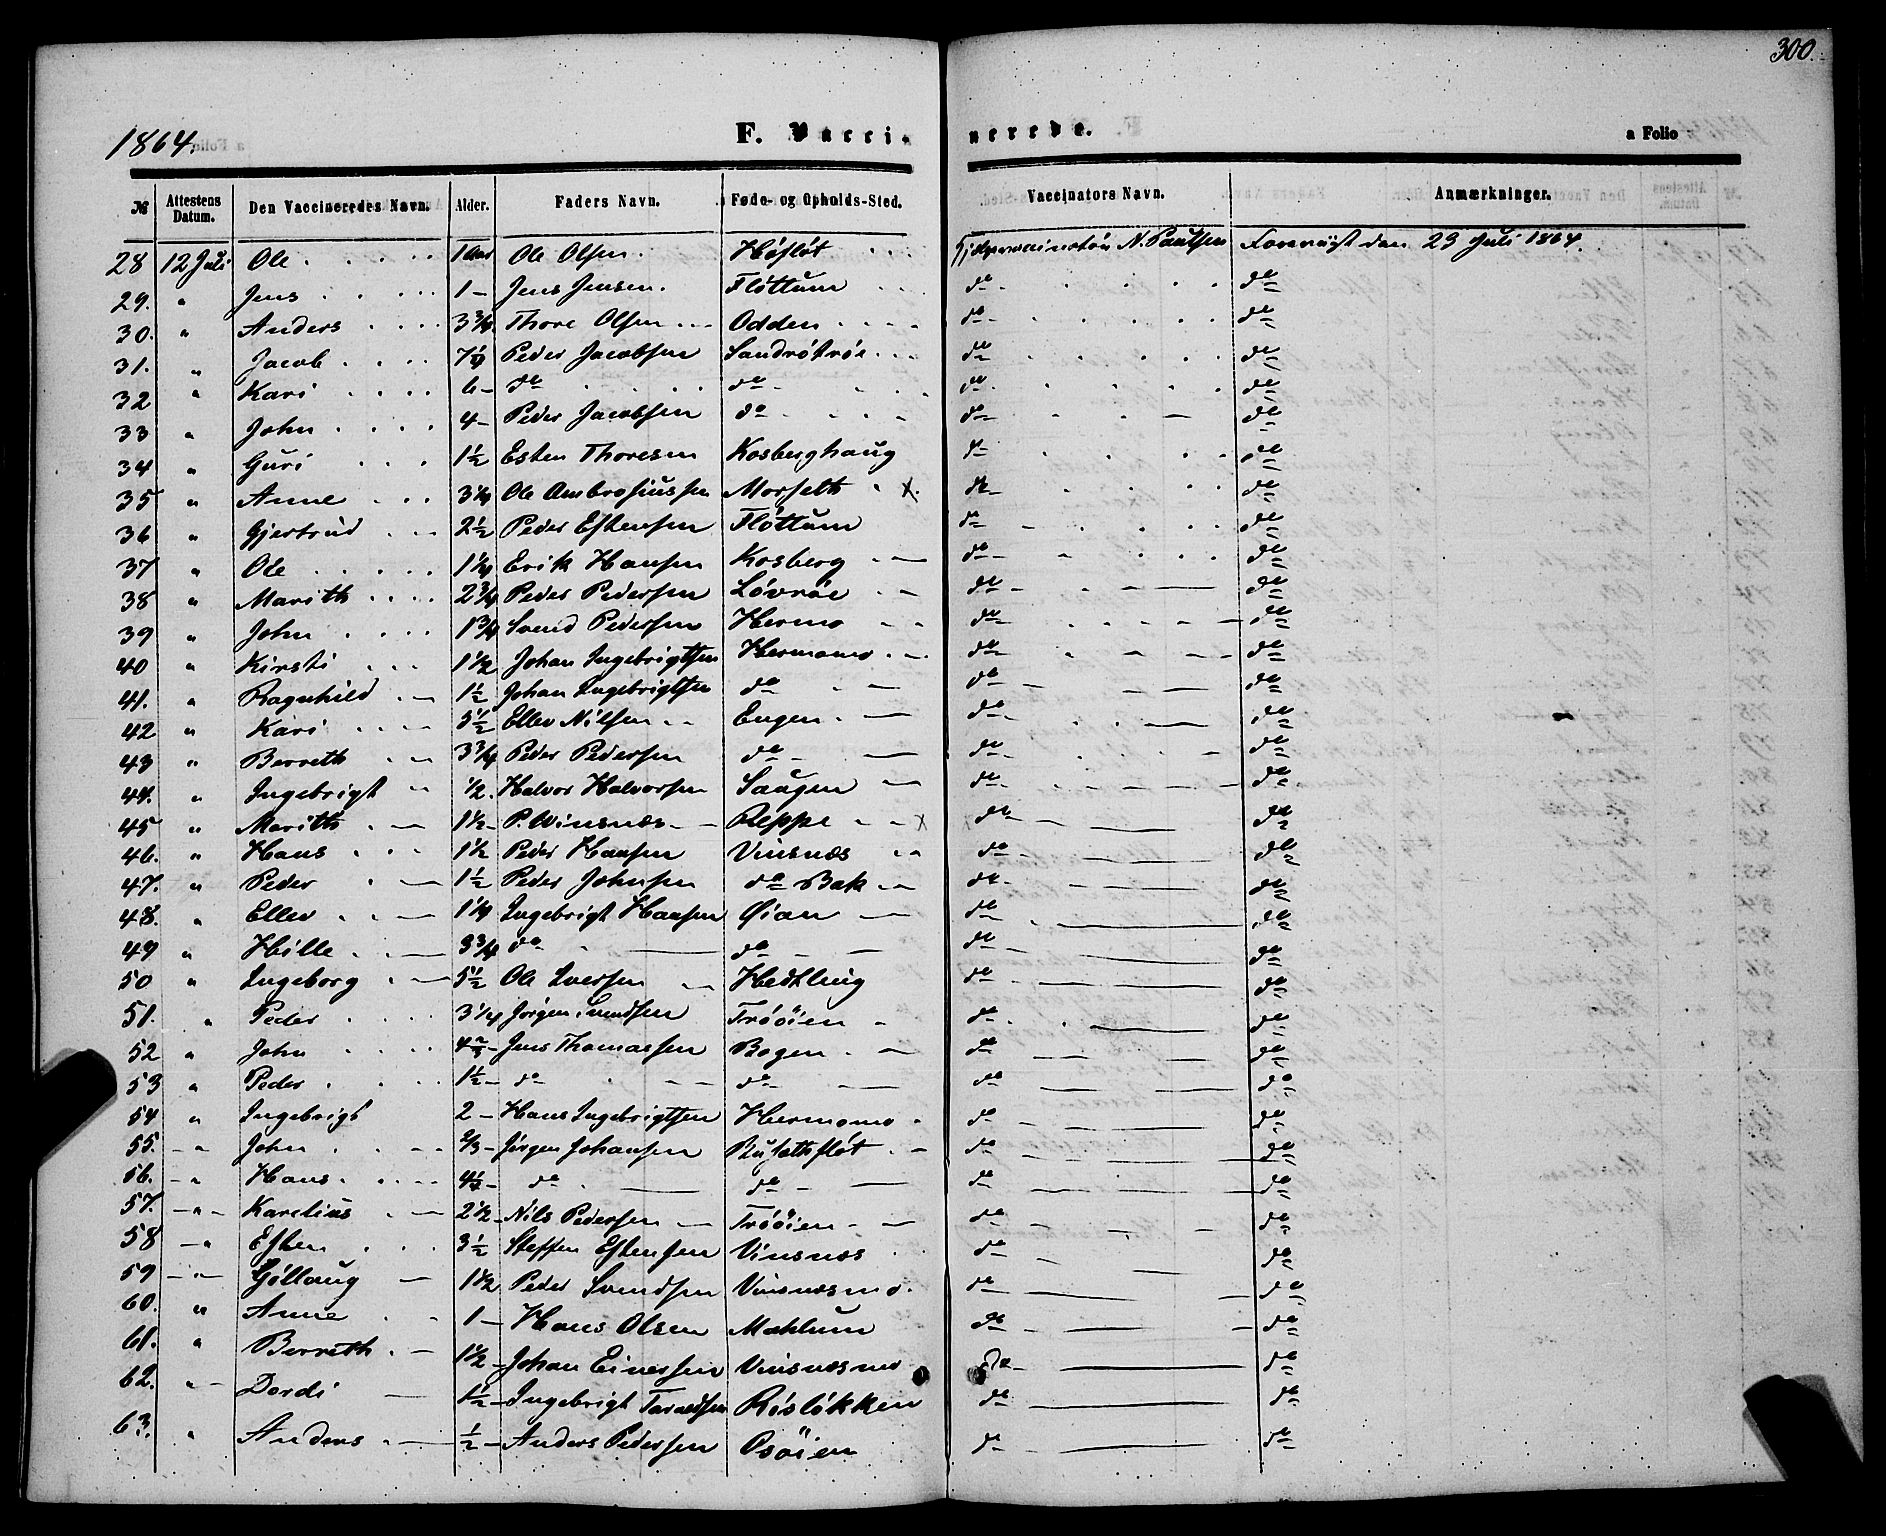 300.
1864.
F. Vacci-
nerede.
a Folio
№ Attestens Datum. Den Vaccineredes Navn. Alder. Faders Navn. Føde- og Opholds-Sted. Vaccinators Navn. Anmærkninger.
28 12 Juli Ole 1 Aar Ole Olsen Høsløt N. Paulsen den 23 Juli 1864.
29. " Jens 1 - Jens Jensen. Fløttum do do
30. " Anders 3 3/4 Thore Olsen Odden do do
31. " Jacob 7 1/4 Peder Jacobsen Sandrøtrøe do do
32 " Kari 6 - do do do do
33 " John 4 - Peder Jacobsen do do do
34 " Guri 1 1/2 Esten Thoresen Kosberghaug do do
35 " Anne 3 1/4 Ole Ambrosiussen Morseth x. do do
36 " Gjertrud 2 1/2 Peder Estensen Fløttum do do
37 " Ole 1 1/4 Erik Hansen Kosberg do do
38 " Marith 2 3/4 Peder Pedersen Løvrøe do do
39 " John 1 3/4 Svend Pedersen Hermo do do
40 " Kirsti 1 1/2 Johan Ingebrigtsen Hermomo do do
41. " Ragnhild 1 1/2 Johan Ingebrigtsen do do do
42 " Kari 5 1/2 Ellev Nilsen Engen do do
43 " Berreth 3 3/4 Peder Pedersen do do do
44. " Ingebrigt 1/2. Halvor Halvorsen Haugen do do
45 " Marith 1 1/2 - P. Winsnæs Reppe x do do
46. " Hans 1 1/2 Peder Hansen Vinsnæs do do
47. " Peder 1 1/2 Peder Johnsen do Bak do do
48. " Ellev 1 1/4 Ingebrigt Hansen Øian do do
49 " Hille 3 3/4 do do do do
50 " Ingeborg 5 1/2 Ole Iversen do do
51. " Peder 3 1/4 Jørgen Svendsen Trøøien do do
52 " John Jens Thomassen Bogen do do
53 " Peder 1 1/2 - do do do do
54 " Ingebrigt 2 - Hans Ingebrigtsen Hermomo do do
55. " John 2/3 - Jørgen Johansen do do
56. " Hans 4 1/2 do do do do
57. " Karelius 2 1/2 Nils Pedersen Trøøien do do
58 " Esten 3 1/2 Steffen Estensen Vinsnæs do do
59 " Gøllaug 1 1/2 Peder Svendsen Vinsnæsmo. do do
60. " Anne 1 - Hans Olsen Mæhlum do do
61. " Berreth 1 1/2 Johan Einersen Vinsnæsmo do do
62. " Dordi 1 1/2 Ingebrigt Røsløkken do do
63. " Anders 1/2 - Anders Pedersen do do